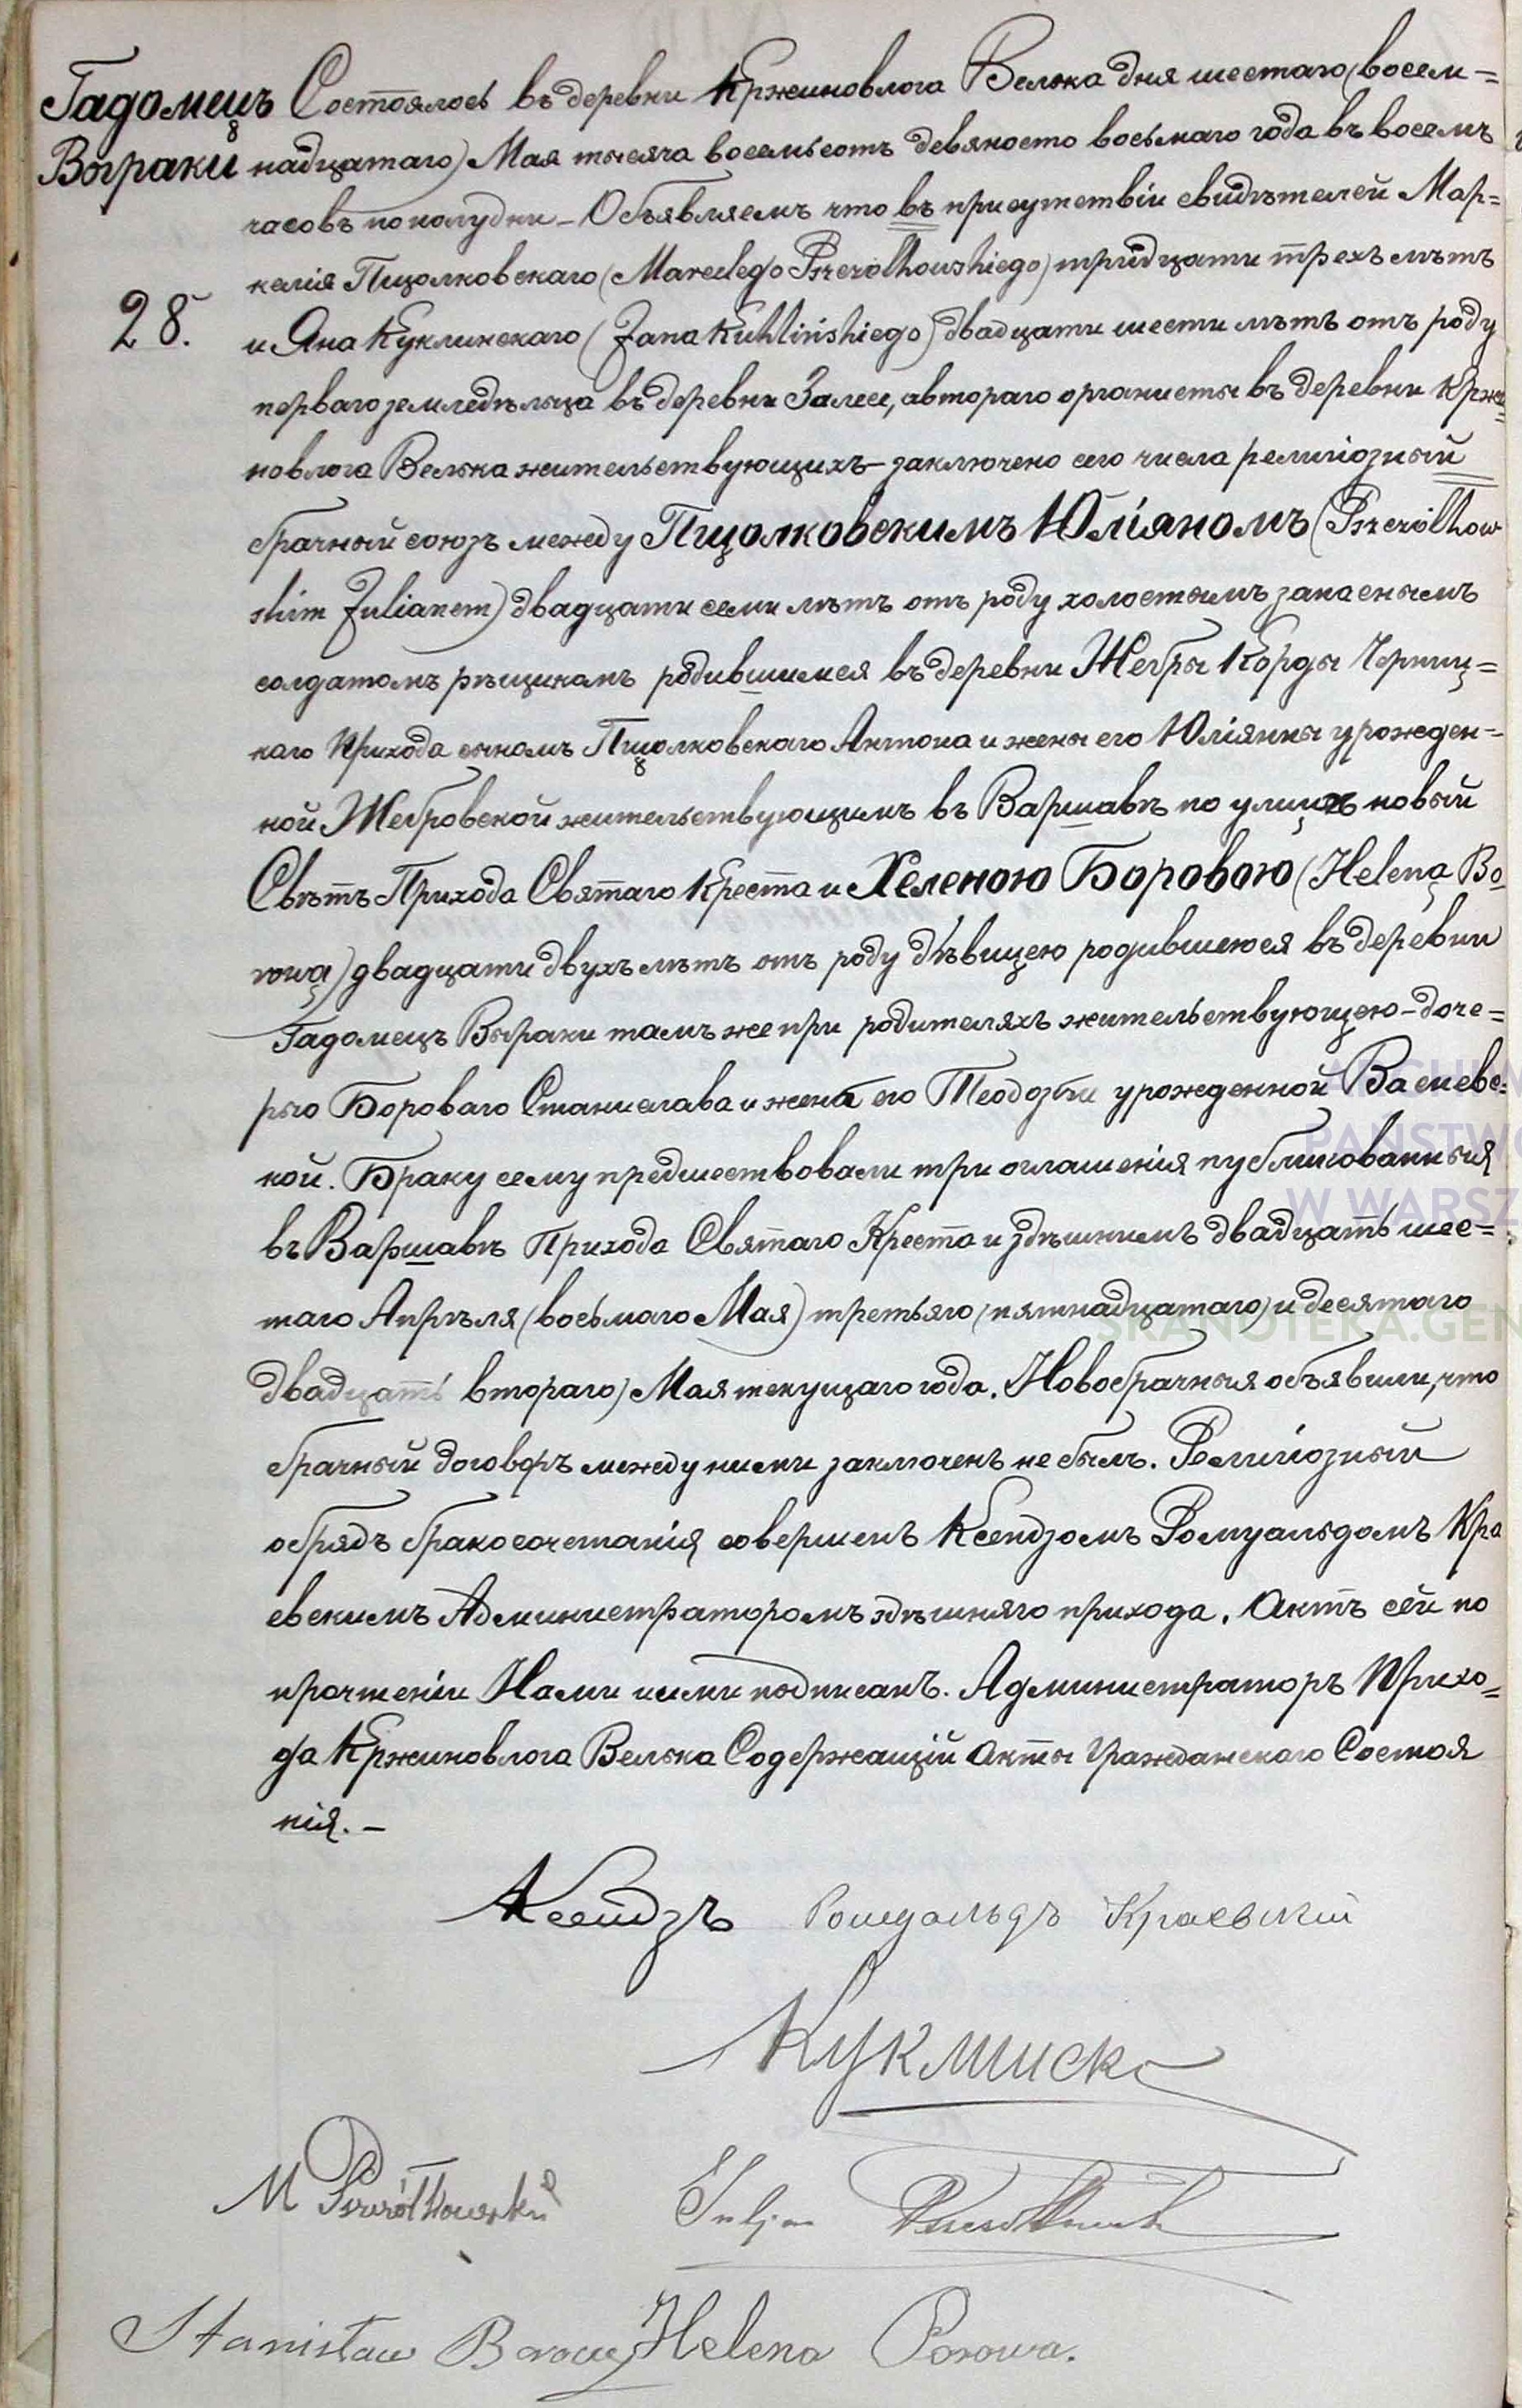 Гадомецъ
Выраки
28.
Состоялось въ деревни Кржиновлога Велька дня шестаго (восем-
надцатаго) Мая тысяча восемьсотъ девяносто восьмаго года въ восемъ
часовъ пополудни – Объявляемъ что въ присутствіи свидѣтелей Мар=
келія Пщолковскаго (Marcelego Pszczółkowskiego) тридцати трехъ лѣтъ
и Яна Куклинскаго (Jana Kuklińskiego) двадцати шести лѣтъ отъ роду
перваго земледѣльца въ деревни Залесе, а втораго органисты въ деревни Кржи=
новлога Велька жительствующихъ – заключено сего числа религіозный
брачный союзъ между Пщолковскимъ Юліяномъ (Pszczółkow
skim Julianem) двадцати семи лѣтъ отъ роду холостымъ запаснымъ
солдатомъ рѣщикомъ родившимся въ деревни Жебры Корды Черниц=
каго Прихода сыномъ Пщолковскаго Антона и жены его Юліянны урожден=
ной Жебровской жительствующимъ въ Варшавѣ по улицѣ новый
Свѣтъ Прихода Святаго Креста и Хеленою Боровою (Heleną Bo
rową) двадцати двухъ лѣтъ отъ роду дѣвицею родившеюся въ деревни
Гадомецъ Выраки тамъ же при родителяхъ жительствующею – доче=
рью Бороваго Станислава и жены его Теодозіи урожденной Васиевс=
кой. Браку сему предшествовали три оглашенія публикованныя
въ Варшавѣ Прихода Святаго Креста и здѣшнимъ двадцать шес=
таго Апрѣля (восьмаго Мая) третьяго (пятнадцатаго) и десятаго
двадцать втораго) Мая текущаго года. Новобрачныя объявили, что
брачный договоръ между ними заключенъ не былъ. Религіозный
обрядъ бракосочетанія совершенъ Ксендзомъ Ромуальдомъ Кра
евскимъ Администраторомъ здѣшняго прихода. Актъ сей по
прочтеніи Нами и ими подписанъ. Администраторъ Прихо=
да Кржиновлога Велька Содержащій Акты Гражданскаго Состоя
нія. –
Ксендзъ Ромуальдъ Краевскій
Куклински
M Pszczółkowski Juljan Pszczółkowski
Stanisław Borowy Helena Borowa.
ARCHIW
PAŃSTWO
W WARSZ
SKANOTEKA.GEN